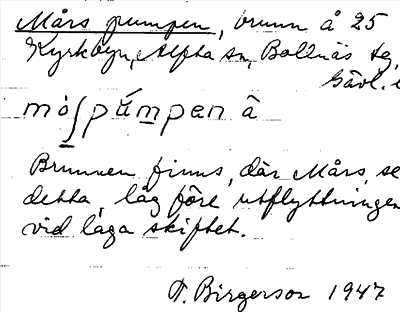 Mårs pumpen, brunn å 25
Kyrkbyn, Alfta sn, Bollnäs tg,
Gävl.
mòʃpúmpen â
Brunnen finns, där Mårs, se
detta, låg före utflyttningen
vid laga skiftet.
T. Birgerson 1947